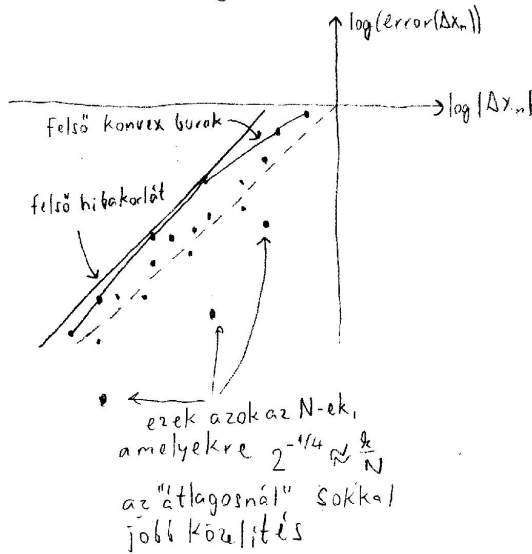 log(error(Δx_n))
log|Δx_n|
felső konvex burak
felső hibakorlát
ezek azok az N-ek,
amelyekre 2^{-1/4} ≈ k/N
az "átlagosnál" sokkal
jobb közelítés